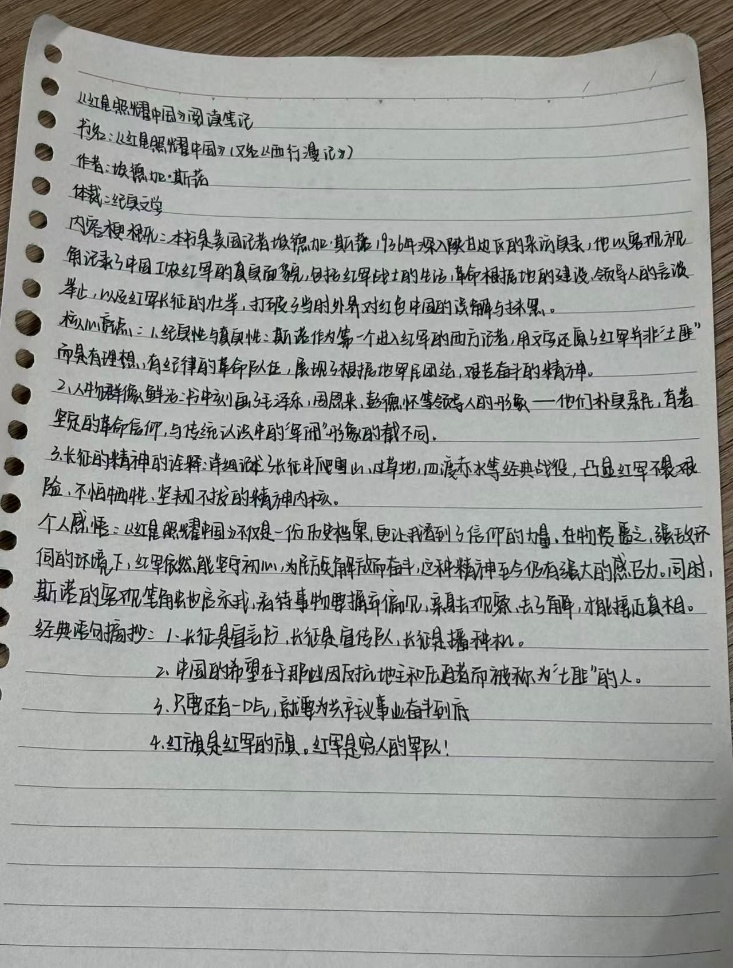 《红星照耀中国》阅读笔记
书名:《红星照耀中国》(又名《西行漫记》)
作者:埃德加·斯诺
体裁:纪实文学
内容梗概:本书是美国记者埃德加·斯诺1936年深入陕甘边区的采访实录,他以客观视
角记录了中国工农红军的真实面貌,包括红军战士的生活,革命根据地的建设,领导人的言谈
举止,以及红军长征的壮举,打破了当时外界对红色中国的误解与抹黑。
核心亮点:1.纪实性与真实性:斯诺作为第一个进入红军的西方记者,用文字还原了红军并非“土匪”
而是有理想,有纪律的革命队伍,展现了根据地军民团结,艰苦奋斗的精神。
2.人物群像鲜活:书中刻画了毛泽东,周恩来,彭德怀等领导人的形象——他们朴实亲民,有着
坚定的革命信仰,与传统认知中的“军阀”形象的截不同。
3.长征的精神的诠释:详细记述了长征中爬雪山,过草地,四渡赤水等经典战役,凸显红军不畏艰
险,不怕牺牲,坚韧不拔的精神内核。
个人感悟:《红星照耀中国》不仅是一份历史档案,更让我看到了信仰的力量。在物资匮乏,强敌环
伺的环境下,红军依然能坚守初心,为民族解放而奋斗,这种精神至今仍有强大的感召力。同时,
斯诺的客观笔角也启示我,看待事物要摒弃偏见,亲身去观察,去了解,才能接近真相。
经典语句摘抄:1.长征是宣言书,长征是宣传队,长征是播种机。
2.中国的希望在于那些因反抗地主和压迫者而被称为“土匪”的人。
3.只要还有一口气,就要为共产主义事业奋斗到底
4.红旗是红军的旗。红军是穷人的军队!